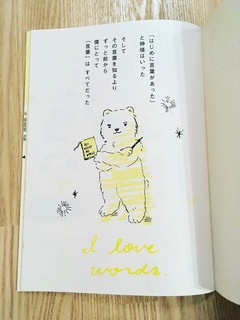 「はじめに言葉があった」
と神様はいった
そして
その言葉を知るより
ずっと前から
僕にとって
「言葉」は すべてだった
I love
words.